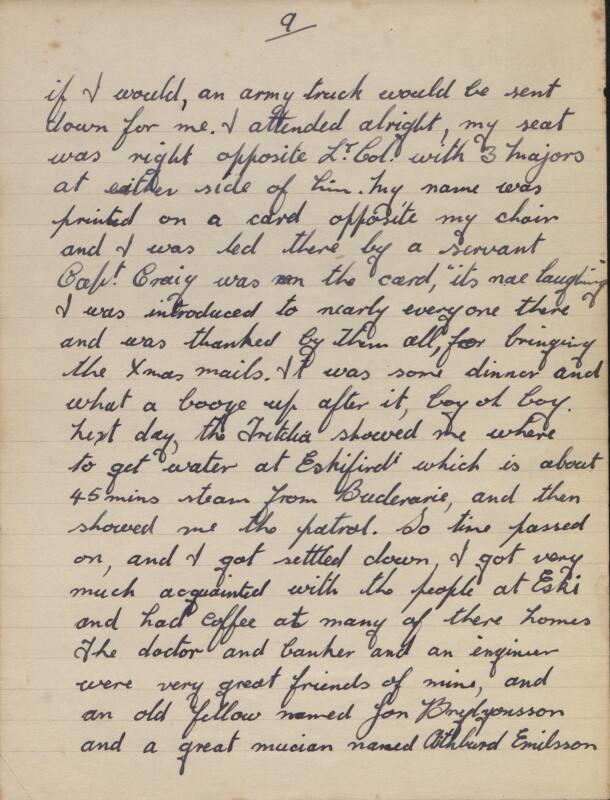 9
if I would, an army truck would be sent
down for me. I attended alright, my seat
was right opposite Lt. Col. with 3 Majors
at either side of him. My name was
printed on a card opposite my chair
and I was led there by a servant
Capt. Craig was on the card, "its nae laughing
I was introduced to nearly everyone there
and was thanked by them all, for bringing
the Xmas mails. It was some dinner and
what a booze up after it, boy oh boy.
Next day, the Fritilia showed me where
to get water at Eskifird which is about
45 mins steam from Buderarie, and then
showed me the patrol. So time passed
on, and I got settled down, I got very
much acquainted with the people at Eski
and had coffee at many of there homes
The doctor and banker and an engineer
were very great friends of mine, and
an old fellow named Jon
and a great mucian named Emilsson